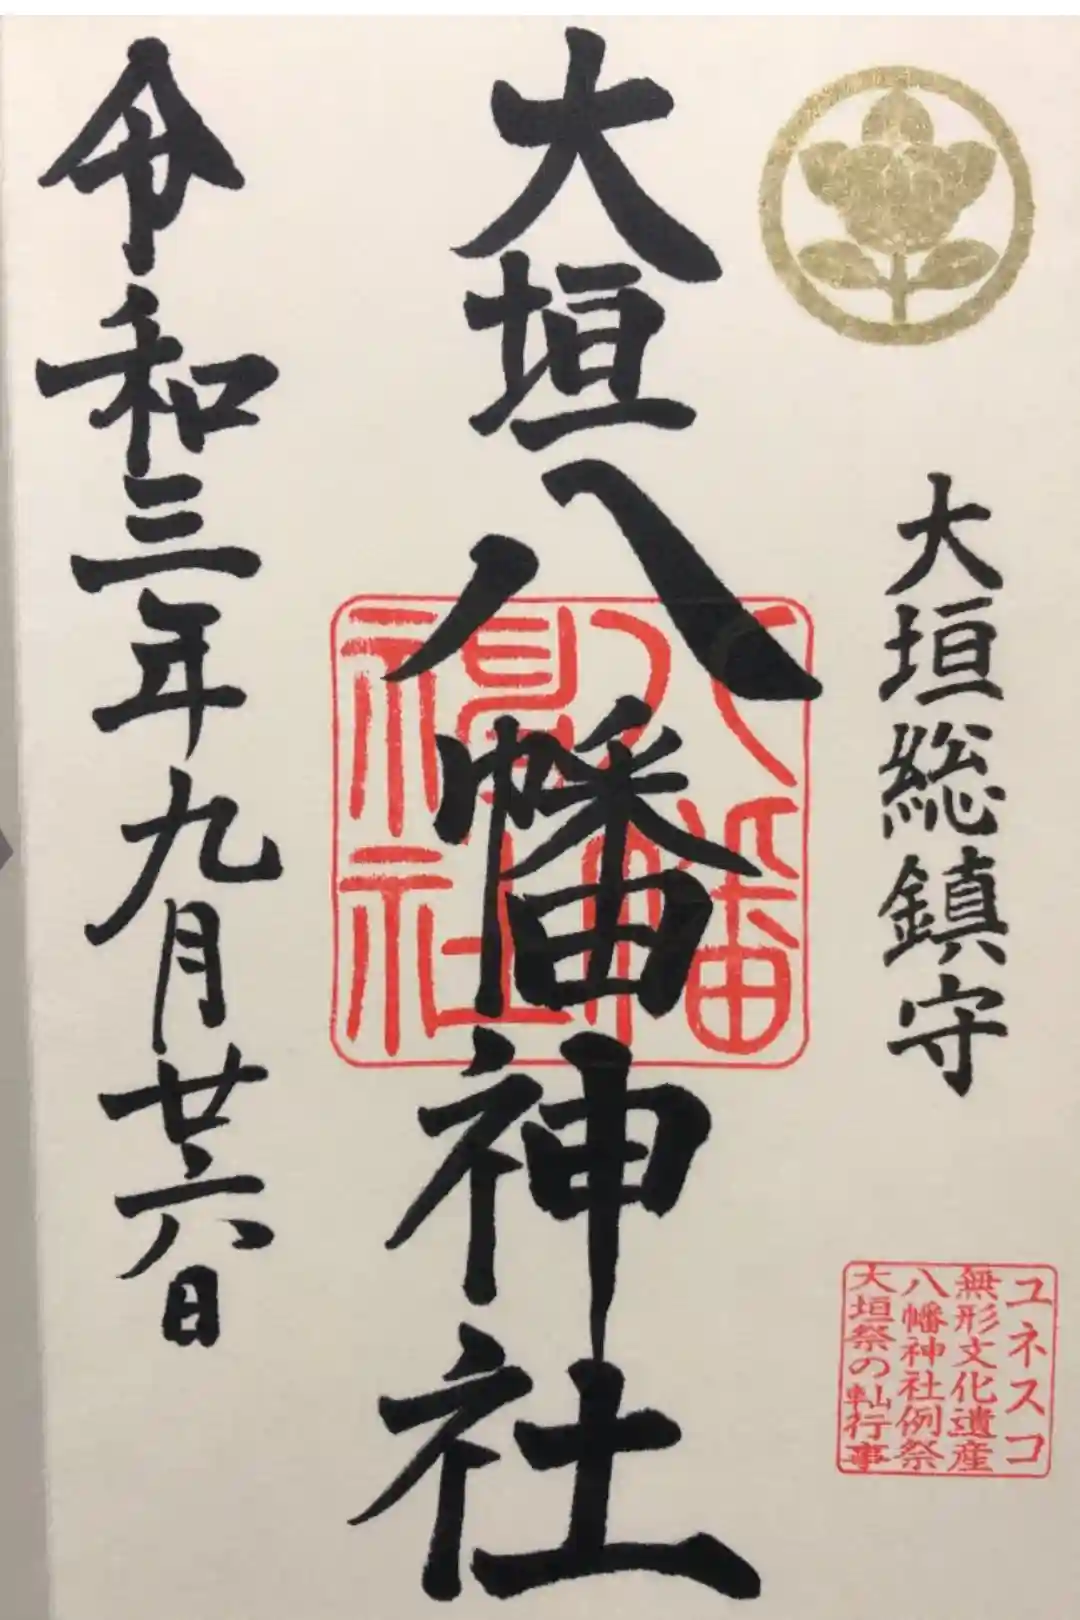 大垣総鎮守
ユネスコ
無形文化遺産
八幡神社例祭
大垣祭の軕行事
大垣八幡神社
八幡
神社
令和三年九月廿六日